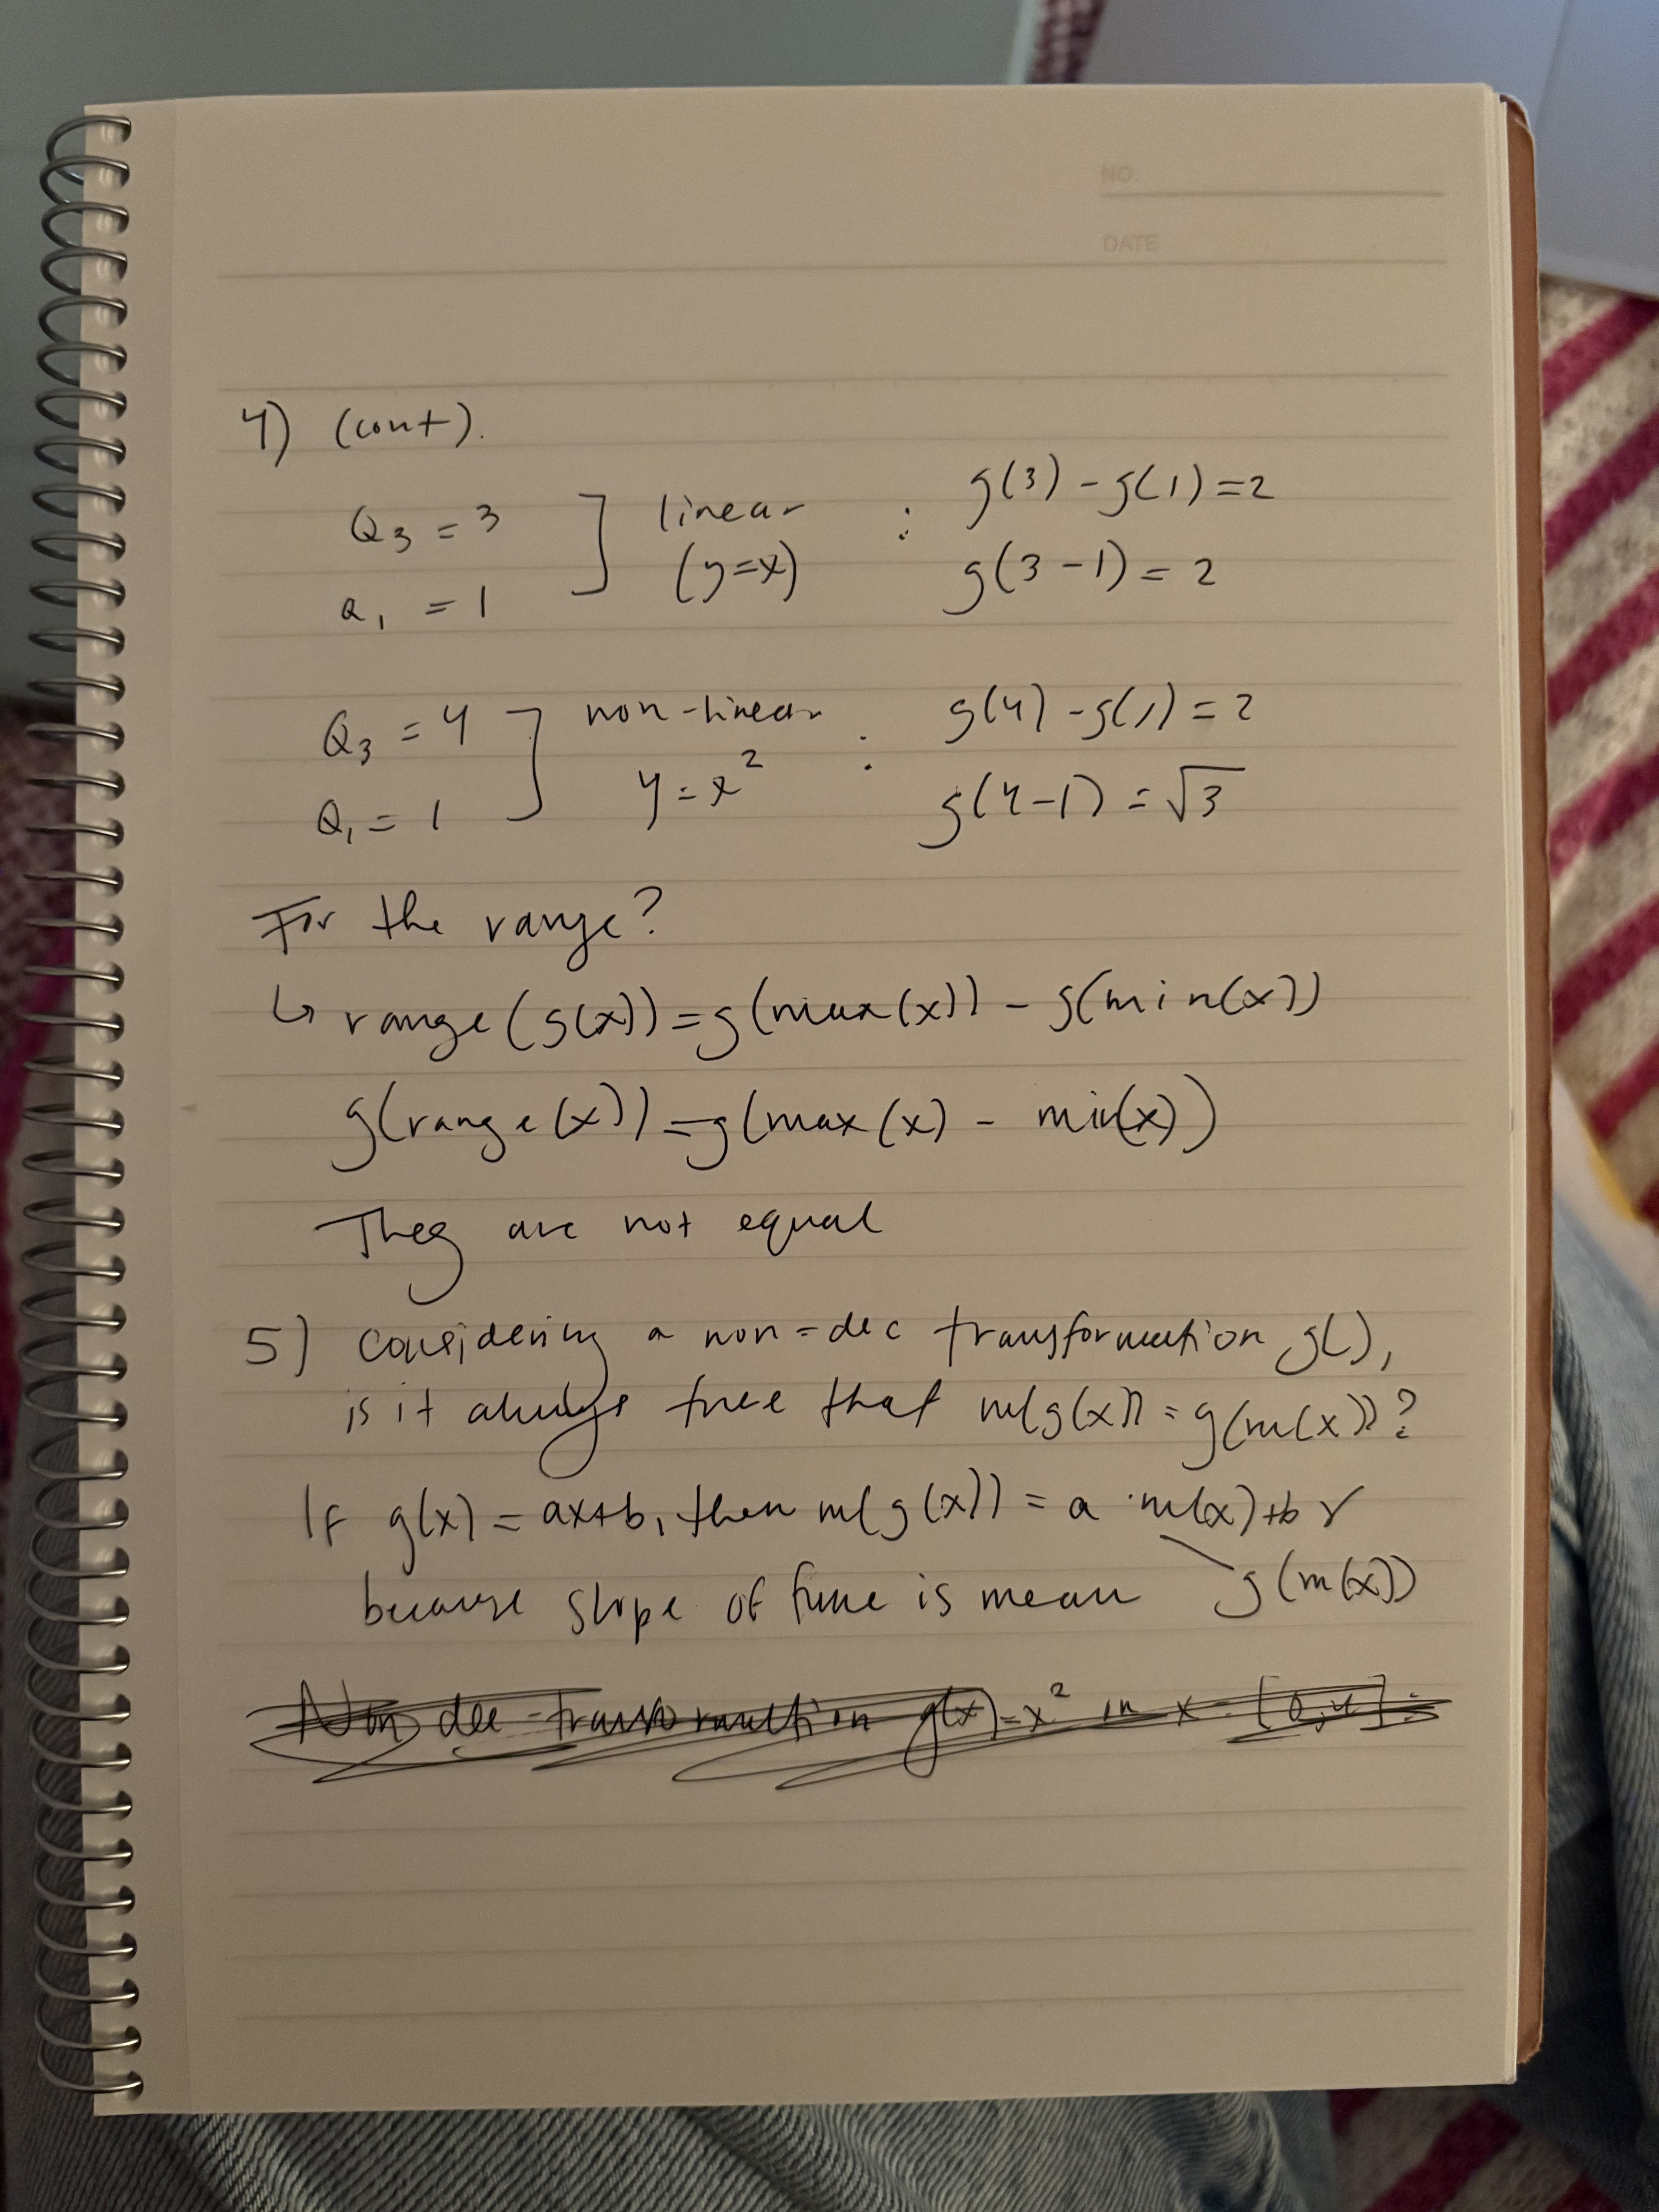 NO.
DATE
4) (cont).
Q3 = 3 ] linear : g(3) - g(1) = 2
Q1 = 1 (y=x) g(3-1) = 2
Q3 = 4 ] non-linear : g(4) - g(1) = 2
Q1 = 1 y = x² g(4-1) = √3
For the range?
↳ range(g(x)) = g(max(x)) - g(min(x))
g(range(x)) = g(max(x) - min(x))
They are not equal
5) Considering a non-dec transformation g(),
is it always true that m(g(x)) = g(m(x))?
If g(x) = ax+b, then m(g(x)) = a·m(x)+b ✓
because slope of func is mean g(m(x))
Non dec-transformation g(x)=x² in x = [0,4]: